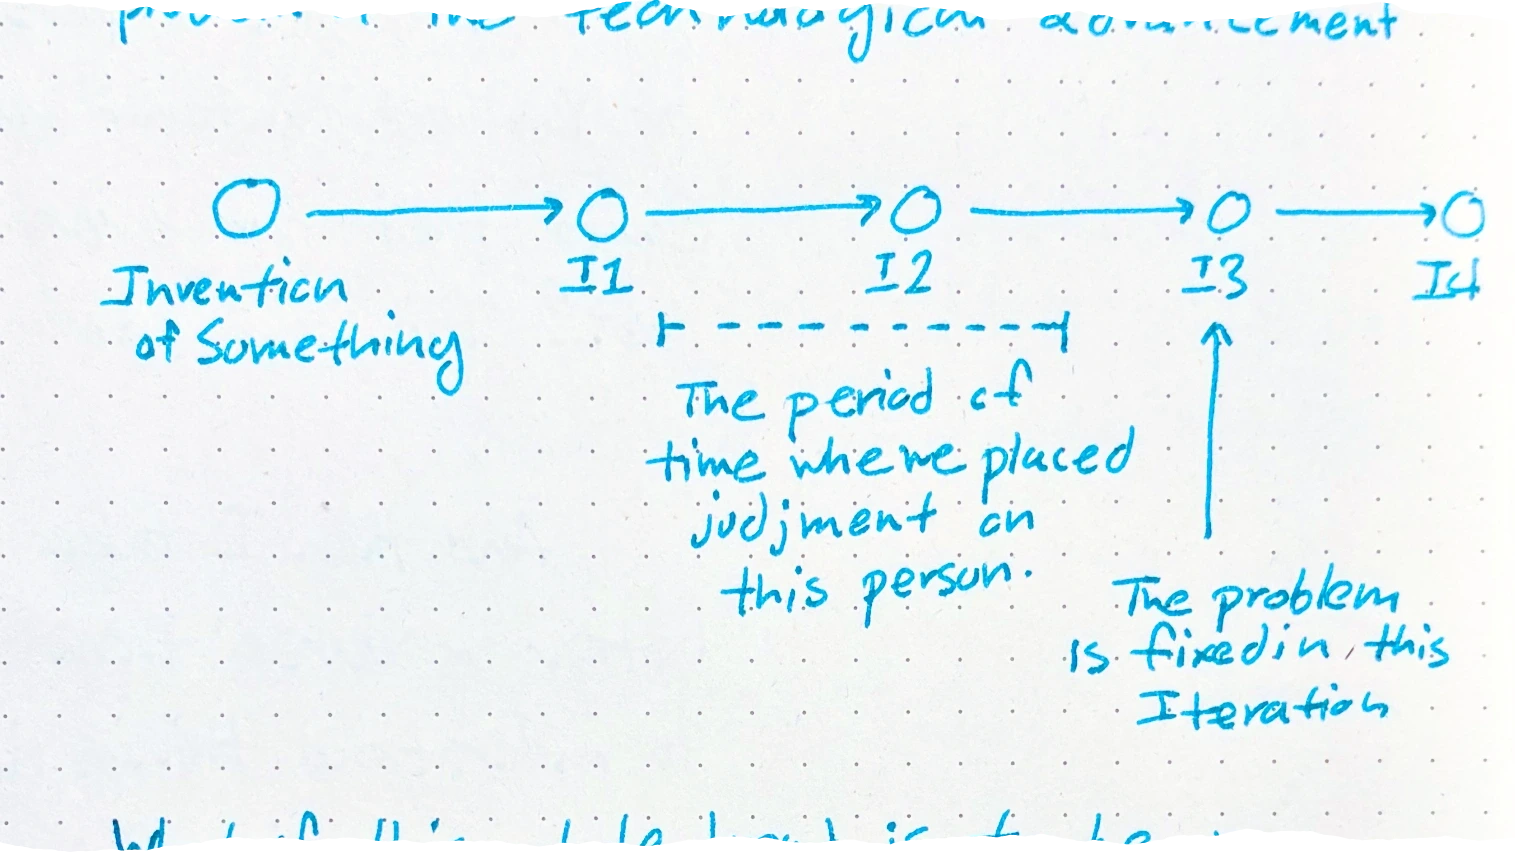 the technological advancement
Invention
of Something
I1
I2
I3
I4
The period of
time where we placed
judjment on
this person.
The problem
is fixed in this
Iteration